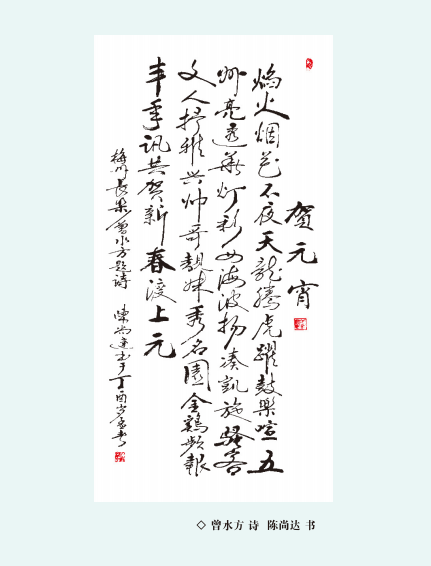 贺元宵
焰火烟花不夜天龍腾虎躍鼓樂喧五
州亮透華灯彩四海波扬凑凯旋骚客
文人抒雅兴帅哥靓妹秀名園金鷄频報
丰年讯共贺新春渡上元
梅州長乐曾水方题诗 陳尚達 于丁酉岁
◇ 曾水方 诗 陈尚达 书